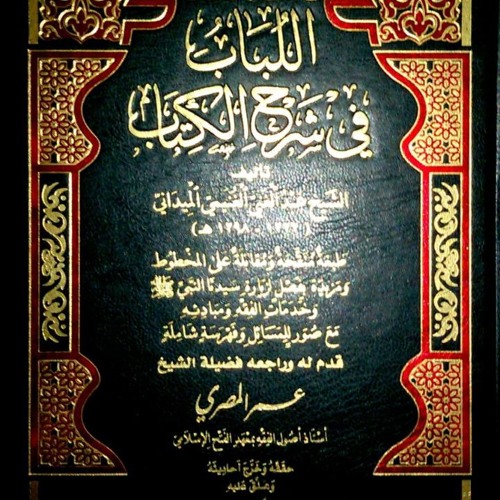 اللُّبَابُ
فِي شَرْحِ الْكِتَابِ
تأليف
الشيخ عبد الغني الغنيمي الميداني
(١٢٢٢ - ١٢٩٨ هـ)
طبعة منقحة ومقابلة على المخطوط
ومزيدة بفصل زيارة سيدنا النبي ﷺ
وخدمات الفقه ومبادئه
مع صور للمسائل وفهرسة شاملة
قدم له وراجعه فضيلة الشيخ
عمر المصري
أستاذ أصول الفقه بمعهد الفتح الإسلامي
حققه وخرّج أحاديثه
وعلّق عليه